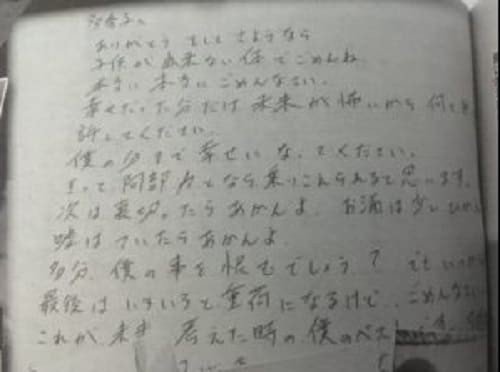 ありがとう そして さようなら
子供が出来ない体でごめんね
本当に本当にごめんなさい。
幸せだった分だけ未来が怖いから 何も
許してください。
僕の分まで幸せになってください。
きっと 阿部 となら乗りこえられると思います。
次は裏切ったらあかんよ お酒は少しひかえ
嘘はついたらあかんよ
多分、僕の事を恨むでしょう? でもいつか
最後は いろいろと重荷になるけど、ごめんなさい
これが、未来 考えた時の僕のベス